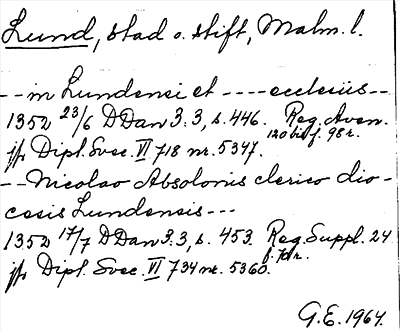 Lund, stad o. stift, Malm. l.
-- in Lundensi et ---- ecclesiis --
1352 23/6 DDan 3:3, s. 446. Reg. Aven.
120 bis f. 98 r.
jfr Dipl. Svec. VI 718 nr. 5347.
-- Nicolao Absolonis clerico dio-
cesis Lundensis ---
1352 17/7 DDan 3.3, s. 453 Reg. Suppl. 24
f. 78 r.
jfr Dipl. Svec. VI 734 nr. 5360.
G.E. 1964.